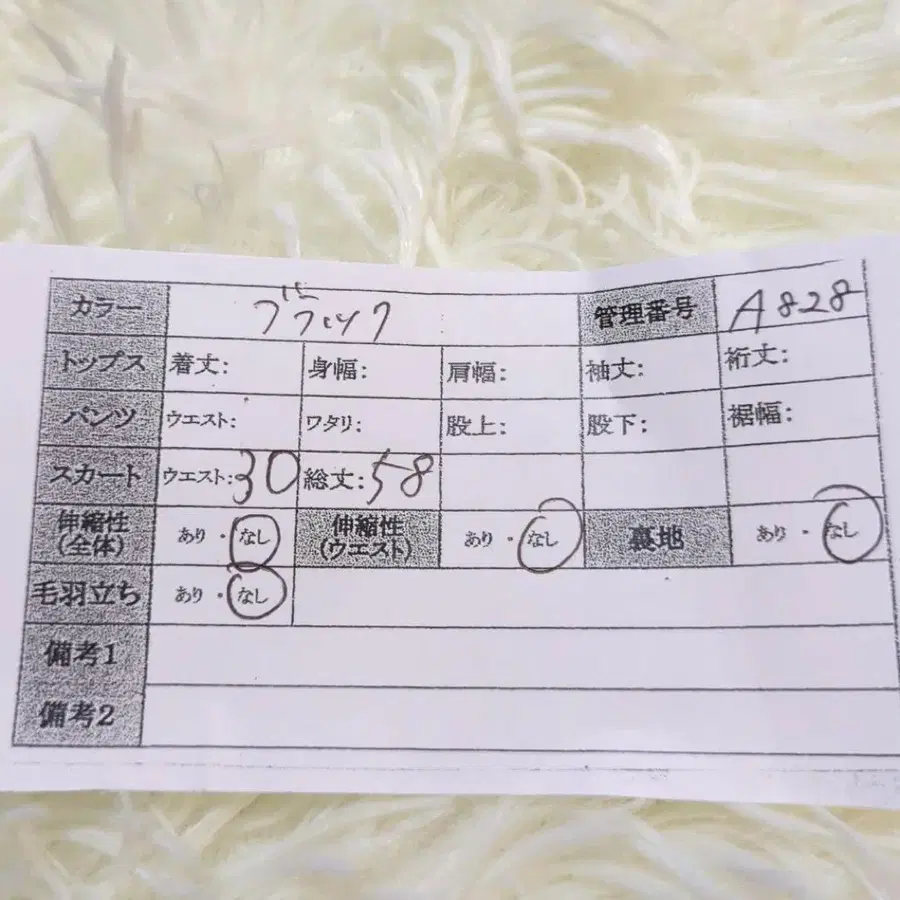 カラー ブラック 管理番号 A828
トップス 着丈: 身幅: 肩幅: 袖丈: 裄丈:
パンツ ウエスト: ワタリ: 股上: 股下: 裾幅:
スカート ウエスト:30 総丈:58
伸縮性(全体) あり・なし 伸縮性(ウエスト) あり・なし 裏地 あり・なし
毛羽立ち あり・なし
備考1
備考2